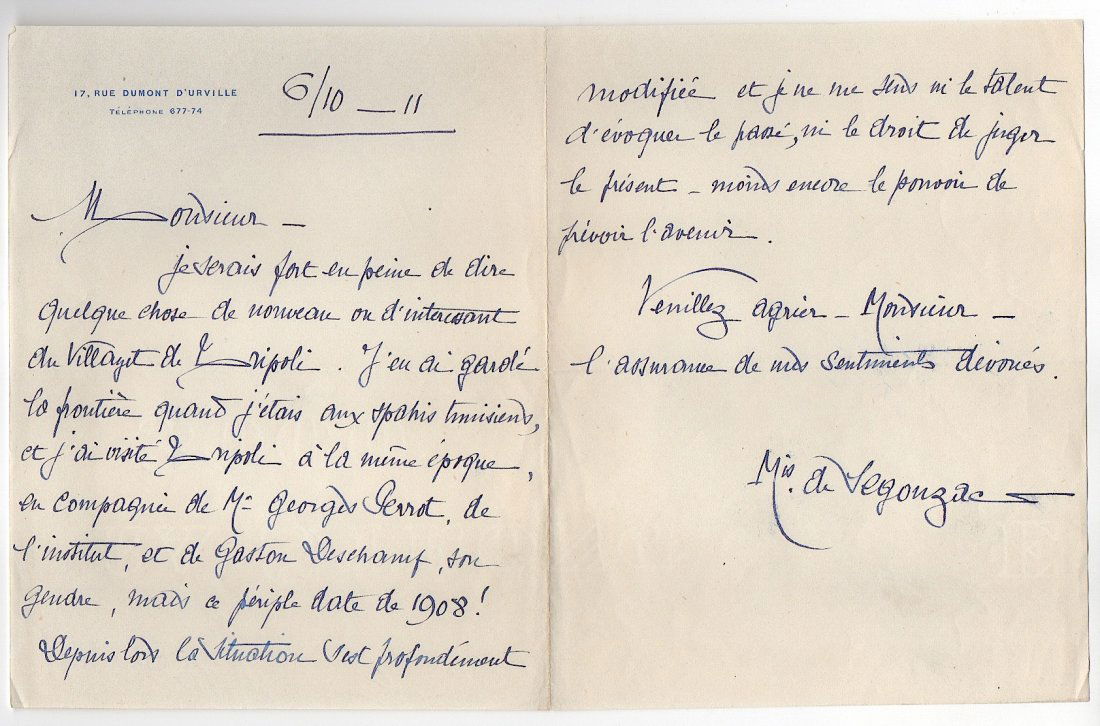 17, RUE DUMONT D'URVILLE
TÉLÉPHONE 677-74
6/10 — 11
Monsieur —
je serais fort en peine de dire
quelque chose de nouveau ou d'interessant
du Villayet de Tripoli. J'en ai gardé
la frontière quand j'étais aux spahis tunisiens,
et j'ai visité Tripoli à la même époque,
en compagnie de Mr Georges Perrot, de
l'institut, et de Gaston Deschamps, son
gendre, mais ce périple date de 1908!
Depuis lors la situation s'est profondément
modifiée et je ne me sens ni le talent
d'évoquer le passé, ni le droit de juger
le présent — moins encore le pouvoir de
prévoir l'avenir.
Veuillez agréer — Monsieur —
l'assurance de mes sentiments dévoués.
Mis. de Segonzac